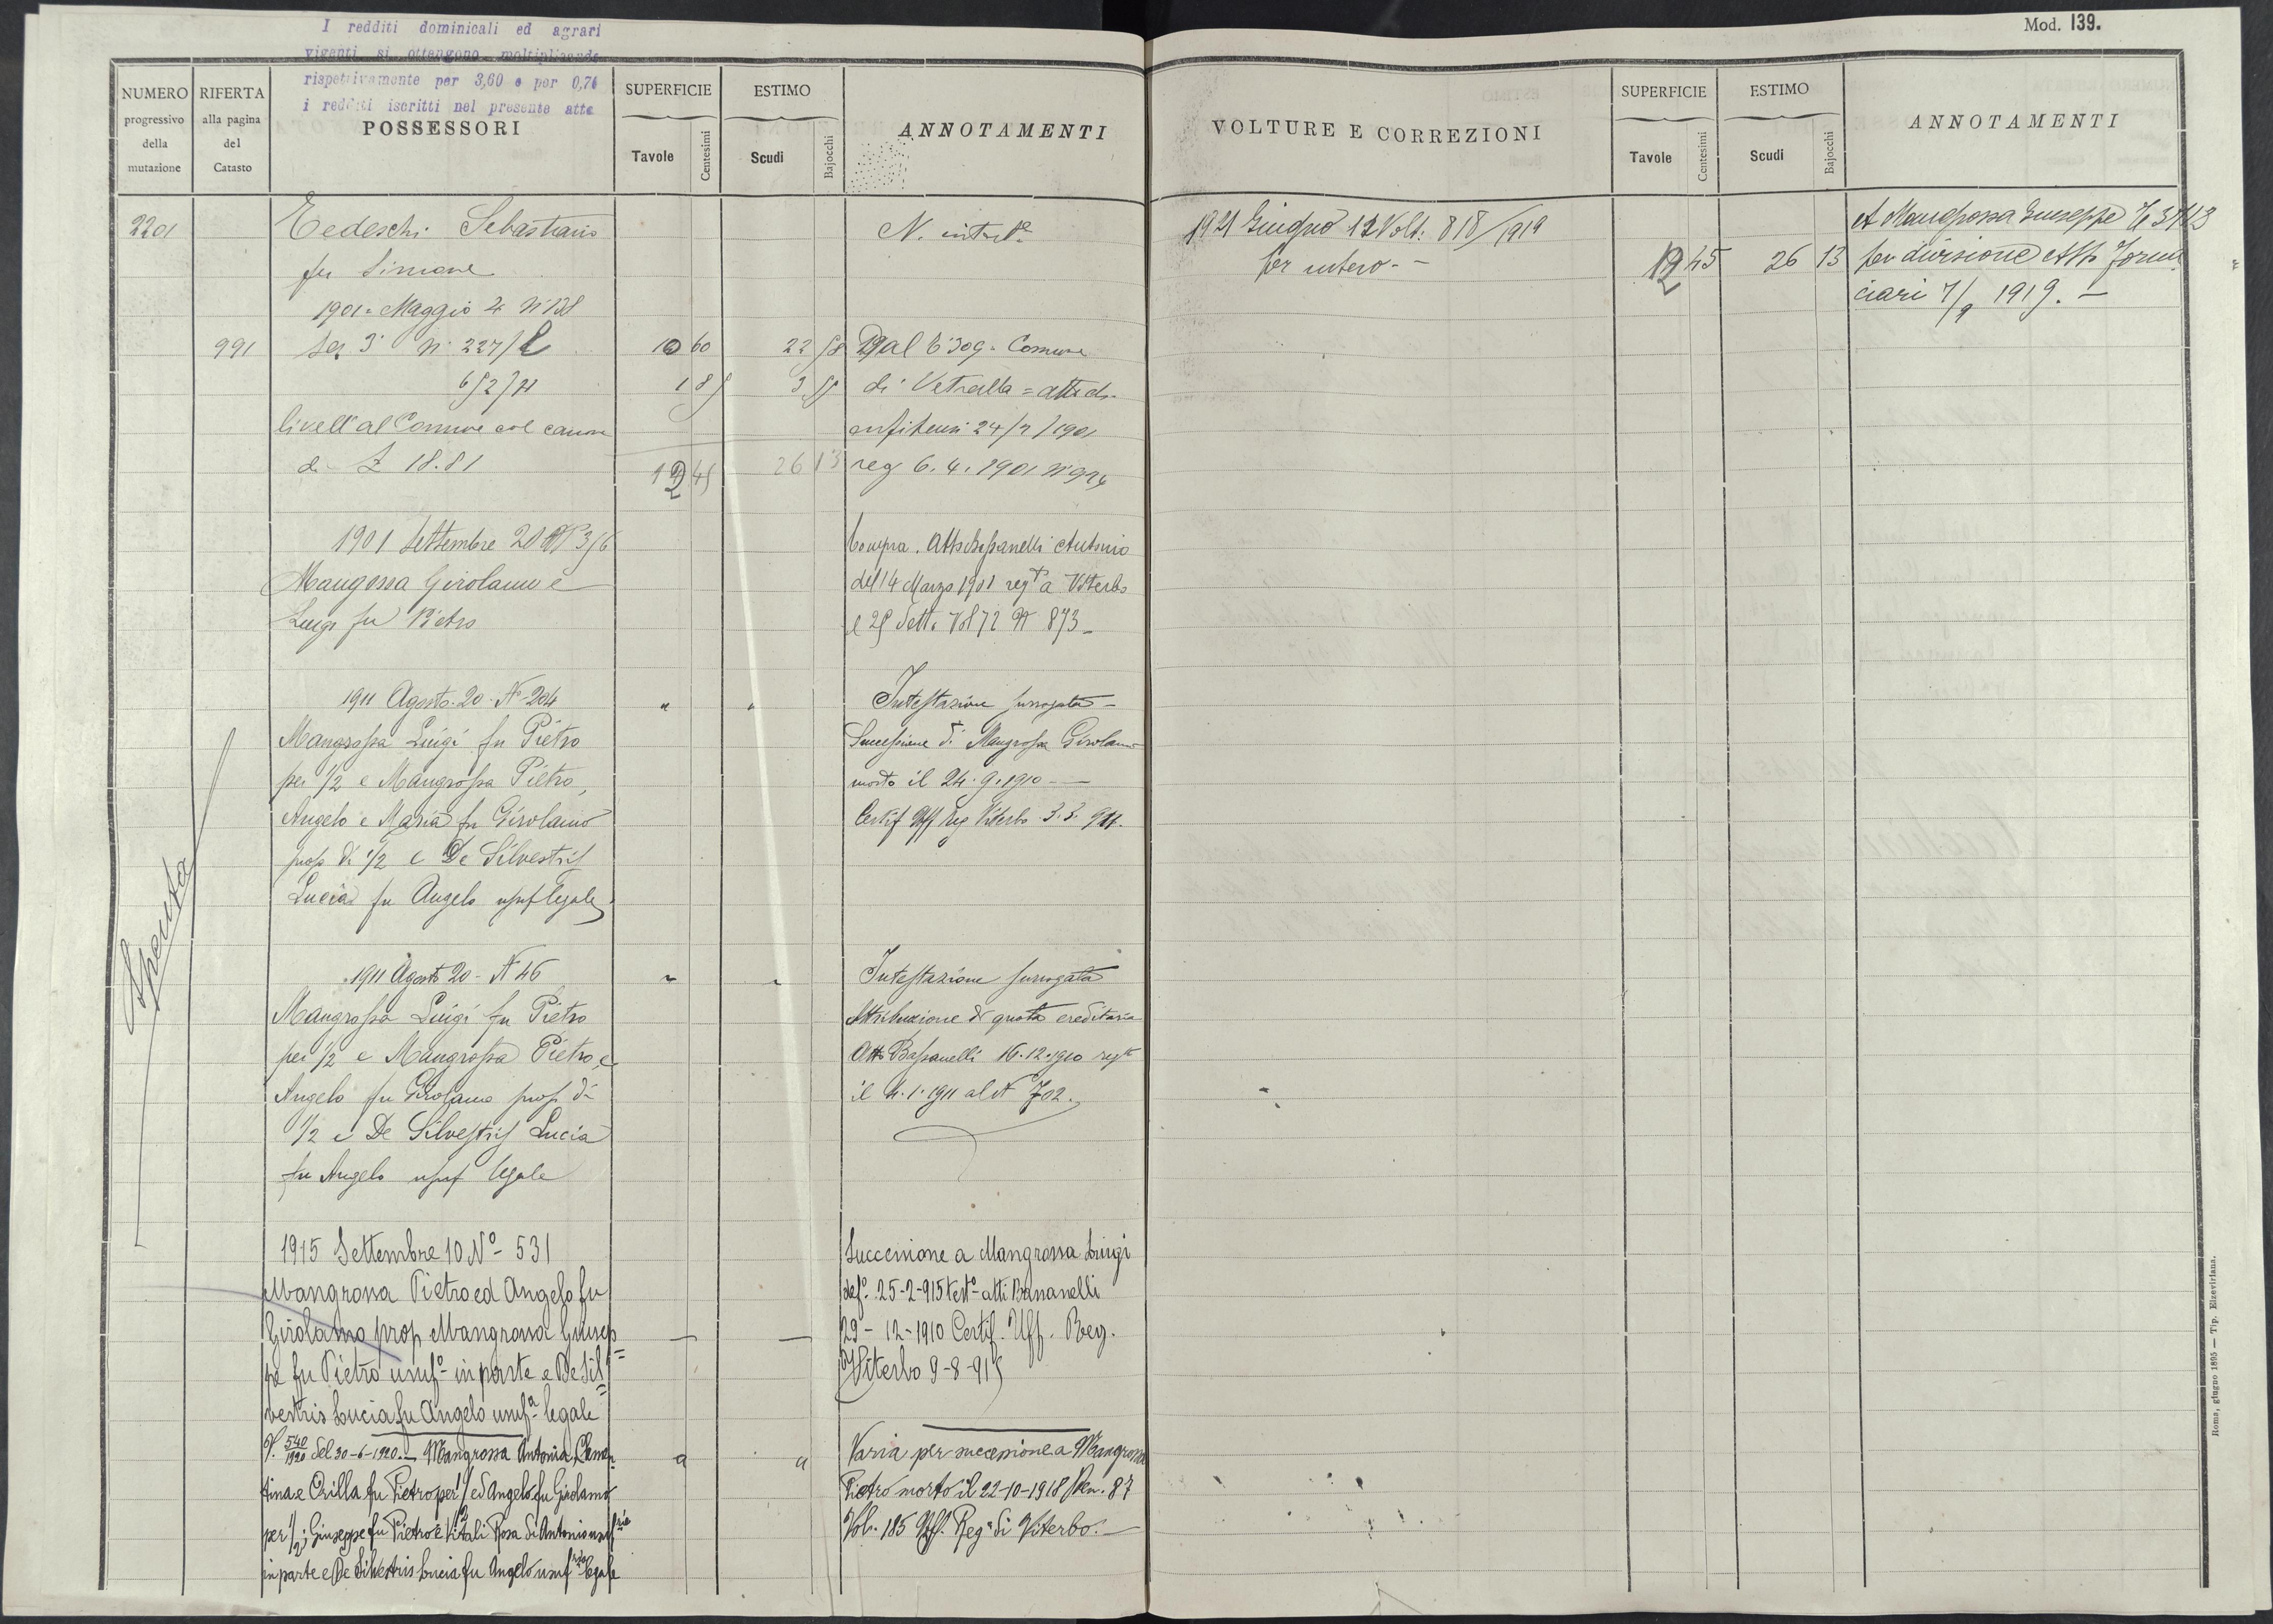 Mod. 139.
I redditi dominicali ed agrari
vigenti si ottengono moltiplicando
rispettivamente per 3,60 e per 0,76
i redditi iscritti nel presente atto
NUMERO
progressivo
della
mutazione
RIFERTA
alla pagina
del
Catasto
POSSESSORI
SUPERFICIE
Tavole
Centesimi
ESTIMO
Scudi
Bajocchi
ANNOTAMENTI
2201
Tedeschi Sebastiano
fu Simone
1901 = Maggio 4 N° 138
991 Sez 3ª N° 227/2 10 60 22 58 Dal C° 309 = Comune
652/4 1 85 3 55 di Vetralla = atto di
livell° al Comune col canone enfiteusi 24/3/1901
di £ 18.81 12 45 26 13 reg 6.4.1901 N° 994
N. intest°
1901 Settembre 20 N° 356
Mangossa Girolamo e
Luigi fu Pietro
Compra. Atto Bassanelli Antonio
del 14 Marzo 1901 regto a Viterbo
il 25 Sett. Vol 72 N° 873
1911 Agosto 20 - N° 204 " "
Mangrossa Luigi fu Pietro
per 1/2 e Mangrossa Pietro,
Angelo e Maria fu Girolamo
prop di 1/2 e De Silvestris
Lucia fu Angelo usuf legale
Intestazione surrogata -
Successione di Mangrossa Girolamo
morto il 24.9.1910 —
Certif Uff Reg Viterbo 3.3.911.
Spenta
1911 Agosto 20 - N° 46 " "
Mangrossa Luigi fu Pietro
per 1/2 e Mangrossa Pietro, e
Angelo fu Girolamo prop di
1/2 e De Silvestris Lucia
fu Angelo usuf legale
Intestazione surrogata
Attribuzione di quota ereditaria
Atto Bassanelli 16.12.1910 regto
il 4.1.1911 al N° 702.
1915 Settembre 10 N° - 531
Mangrossa Pietro ed Angelo fu
Girolamo prop Mangrossa Giusep=
pe fu Pietro usuf° in parte e De Sil=
vestris Lucia fu Angelo usufª legale
Successione a Mangrossa Luigi
def° 25-2-915 test° atti Bassanelli
29-12-1910 Certif. Uff. Reg.
Viterbo 9-8-915
V. 540/1920 del 30-6-1920. - Mangrossa Antonia, Clemen
tina e Orilla fu Pietro per 1/2 ed Angelo fu Girolamo
per 1/2; Giuseppe fu Pietro e Vitali Rosa di Antonio usufrie
in parte e De Silvestris Lucia fu Angelo usufria legale
" "
Varia per successione a Mangrossa
Pietro morto il 22-10-1918 Den. 87
Vol. 185 Uff. Reg° di Viterbo. —
VOLTURE E CORREZIONI
SUPERFICIE
Tavole
Centesimi
ESTIMO
Scudi
Bajocchi
ANNOTAMENTI
1921 Giugno 12 Volt: 818/1919
per intero -
12 45 26 13
A Mangrossa Giuseppe C° 3713
per divisione Atto Forna
ciari 7/9 1919. —
Roma, giugno 1895 — Tip. Elzeviriana.